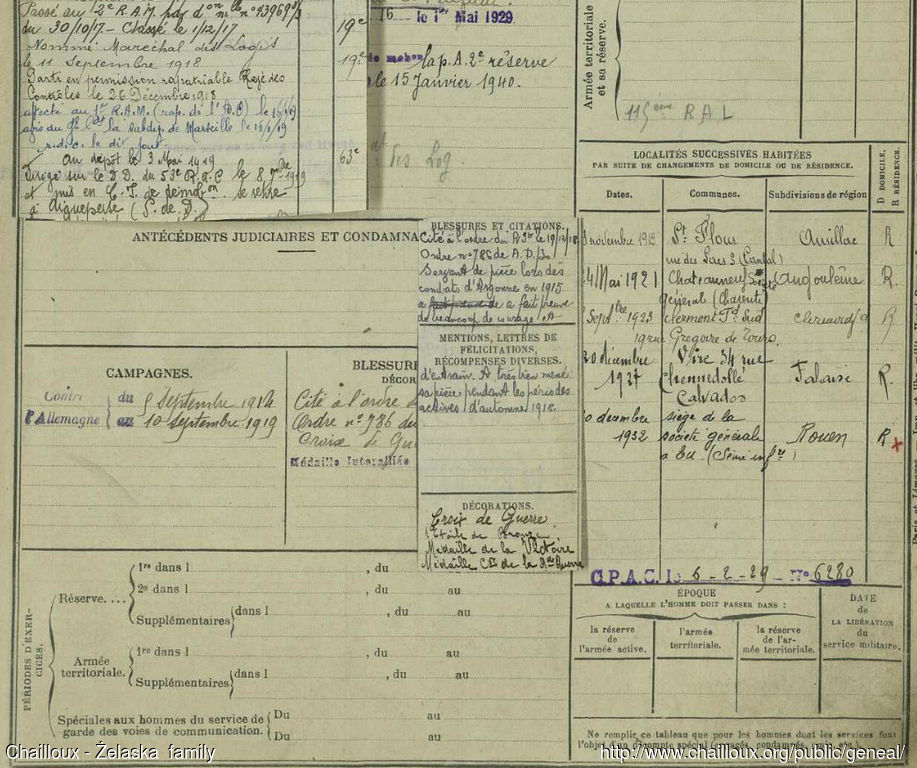 Passé au 2e R.A.M. par don mlle n°
du 30/10/17 - Classé le 1/12/17
Nommé Maréchal des Logis
le 11 Septembre 1918
Parti en permission rapatriable Rayé des
Contrôles le 26 Décembre 1918
affecté au 1er R.A.M. (rap. de l'A.O) le 16/1/19
la subdiv. de Marseille le
dit jour
Au dépôt le 3 Mai 1919
Dirigé sur le D.D. du 53e R.A.C le 8 7bre 1919
et mis en C. I. de démob on se retire
à Aigueperse (P. de D.)
19e
19e
63e
16 le 1er Mai 1929
la p. A. 2e réserve
le 15 Janvier 1940.
des Log
Armée territoriale
et sa réserve.
115ème R A L
LOCALITÉS SUCCESSIVES HABITÉES
PAR SUITE DE CHANGEMENTS DE DOMICILE OU DE RÉSIDENCE.
D DOMICILE.
R RÉSIDENCE.
Dates. Communes. Subdivisions de région
novembre 1912 St Flour Aurillac R
rue des Lacs 3 (Cantal)
4 Mai 1921 Chateauneuf Société Angoulême R.
générale (Charente)
Septbre 1923 Clermont Fd Sud R
19 rue Grégoire de Tours.
20 décembre Vire 34 rue
1927 Chennedollé Falaise R.
Calvados
décembre siège de la
1932 société générale Rouen R x
à Eu. (Seine infre)
C.P.A.C. le 6-2-29 - No 6280
ANTÉCÉDENTS JUDICIAIRES ET CONDAMNA
CAMPAGNES.
Contre
l'Allemagne
du 5 Septembre 1914
au 10 Septembre 1919
BLESSURE
DÉCOR
Cité à l'ordre d
Ordre n° 786 du
Croix de Gu
Médaille Interalliée
BLESSURES ET CITATIONS.
Cité à l'ordre du le 19/12/18
Ordre n° 786 de A.D/30
Servant de pièce lors des
combats d'Argonne en 1915
a fait preuve de a fait preuve
de beaucoup de courage. A
MENTIONS, LETTRES DE
FÉLICITATIONS,
RÉCOMPENSES DIVERSES.
d'entrain. A très bien mené
sa pièce pendant les périodes
actives d'automne 1918.
DÉCORATIONS.
Croix de Guerre
Etoile de Bronze.
Médaille de la Victoire
Médaille Cve de la Gde Guerre
PÉRIODES D'EXER-
CICES.
Réserve....
1re dans l , du au
2e dans l , du au
Supplémentaires dans l , du au
Armée
territoriale.
1re dans l , du au
Supplémentaires dans l , du au
Spéciales aux hommes du service de
garde des voies de communication.
Du au
Du au
ÉPOQUE
A LAQUELLE L'HOMME DOIT PASSER DANS :
la réserve
de
l'armée active.
l'armée
territoriale.
la réserve
de l'ar-
mée territoriale.
DATE
de
LA LIBÉRATION
du
service militaire.
Ne remplir ce tableau que pour les hommes dont les services font
l'objet d'un décompte spécial (engagés, condamnés, omis, etc.)
Chailloux - Żelaska family
http://www.chailloux.org/public/geneal/